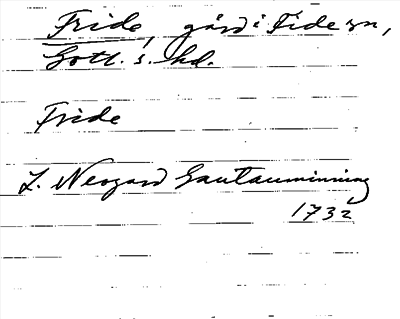 Fride, gård i Fide sn,
Gotl. s. hd.
Fride
L. Neogard Gautauminning
1732